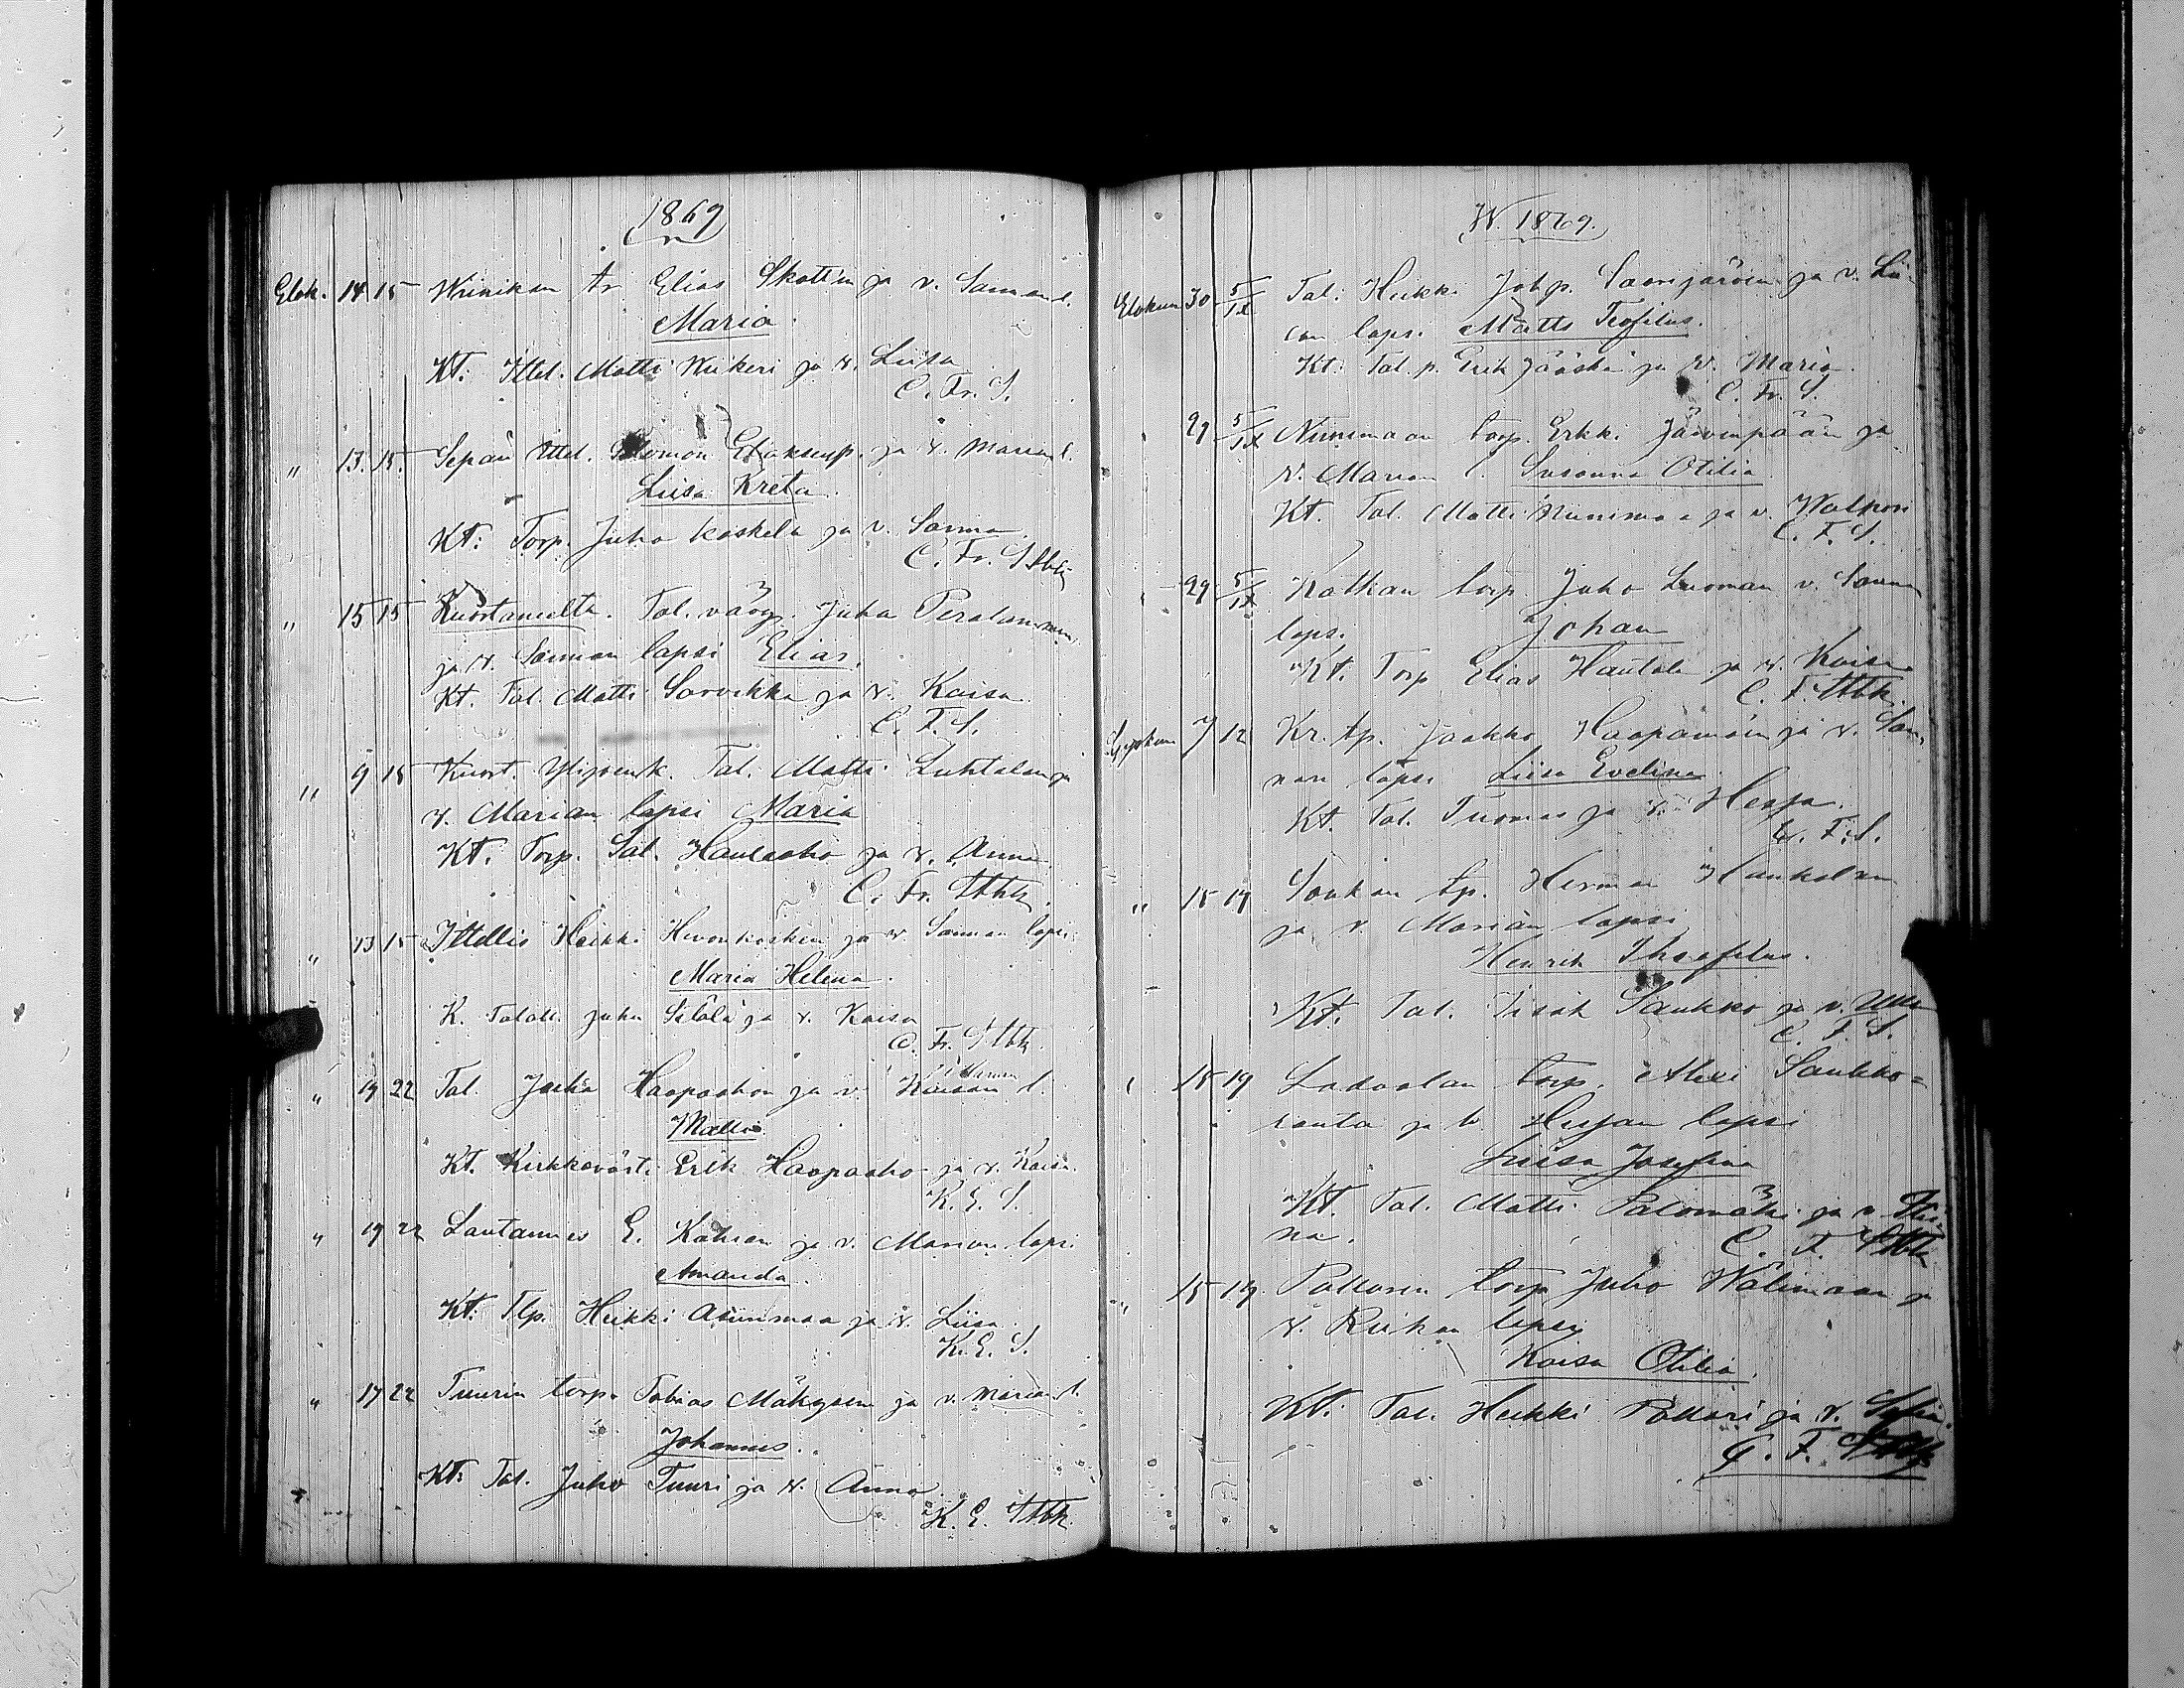 1869
Elok. 14 15 Wiinikan tr Elias Skottin ja v. Sannan l.
Maria.
Kt: Ittel. Matti Niikeri ja v. Liisa
C. Fr. S.
" 13. 15. Sepän Ittel. Salomon ja v. Marian l.
Liisa Kreta.
Kt: Torp. Juho Koskela ja v. Sanna.
C. Fr. Stbk
" 15 15 Kuortaneelta. Tal. vävyp. Juha Peralammin
ja v. Sannan lapsi Elias.
Kt. Tal. Matti Sarvikka ja v. Kaisa.
C. F. S.
" 9 15 Kuort. Ylijoenk. Tal. Matti Luhtalan ja
v. Marian lapsi Maria
Kt. Torp. Sal. Haulaaho ja v. Anna.
C. Fr. Stbk.
" 13 15 Ittellis Heikki Hevonkosken ja v. Sannan lapsi
Maria Helena.
K. Talall. Juha Silälä ja v. Kaisa
C. Fr. Stbk.
" 19 22 Tal. Juha Haapaahon ja v. Kaisan l.
Matts.
Kt. Kirkkovärti Erik Haapaaho ja v. Kaisa.
K. E. S.
" 19 22 Lautamies E. Kätkän ja v. Marian lapsi
Amanda.
Kt. Tlp. Heikki Asunmaa ja v. Liisa.
K. E. S.
" 17 22 Tuurin torp. Tobias Mäkysen ja v. Marian l.
Johannes.
Kt: Tal. Juho Tuuri ja v. Anna.
K. E. Stbk
W. 1869.
Elokuun 30 5/IX Tal. Heikki Joh.p. Saarijärven ja v. Lii-
san lapsi Matts Teofilus.
Kt: Tal. p. Erik Jääskä ja v. Maria.
C. Fr. S.
29 5/IX Niinimaan torp. Erkki Järvenpään ja
v. Marian l. Susanna Otilia
Kt. Tal. Matti Niinimaa ja v. Walpori
C. F. S.
29 5/IX Kätkän torp. Juho Luoman v. Sannan
lapsi Johan
Kt. Torp Elias Hautala ja v. Kaisa
C. F. Stbk.
Syyskuun 7 12 Kr. tp. Jaakko Haapamäen ja v. San-
nan lapsi Liisa Evelina
Kt. Tal. Tuomas ja v. Heta.
C. F. S.
" 15 19 Soukan tp. Herman Hankolan
ja v. Marian lapsi
Henrik Theofilus.
Kt: Tal. Iisak Saukko ja v. Ulla
C. F. S.
15 19 Ladvalan torp. Alexi Saukko-
ranta ja v. Hetan lapsi
Liisa Josefina
Kt. Tal. Matti Palomäki ja v. Sti-
na.
C. F. Stbk
" 15 19. Pollarin torp Juho Wälimaan ja
v. Riikan lapsi
Kaisa Otilia.
Kt. Tal. Heikki Pollari ja v. Sofia.
C. F. Stbk